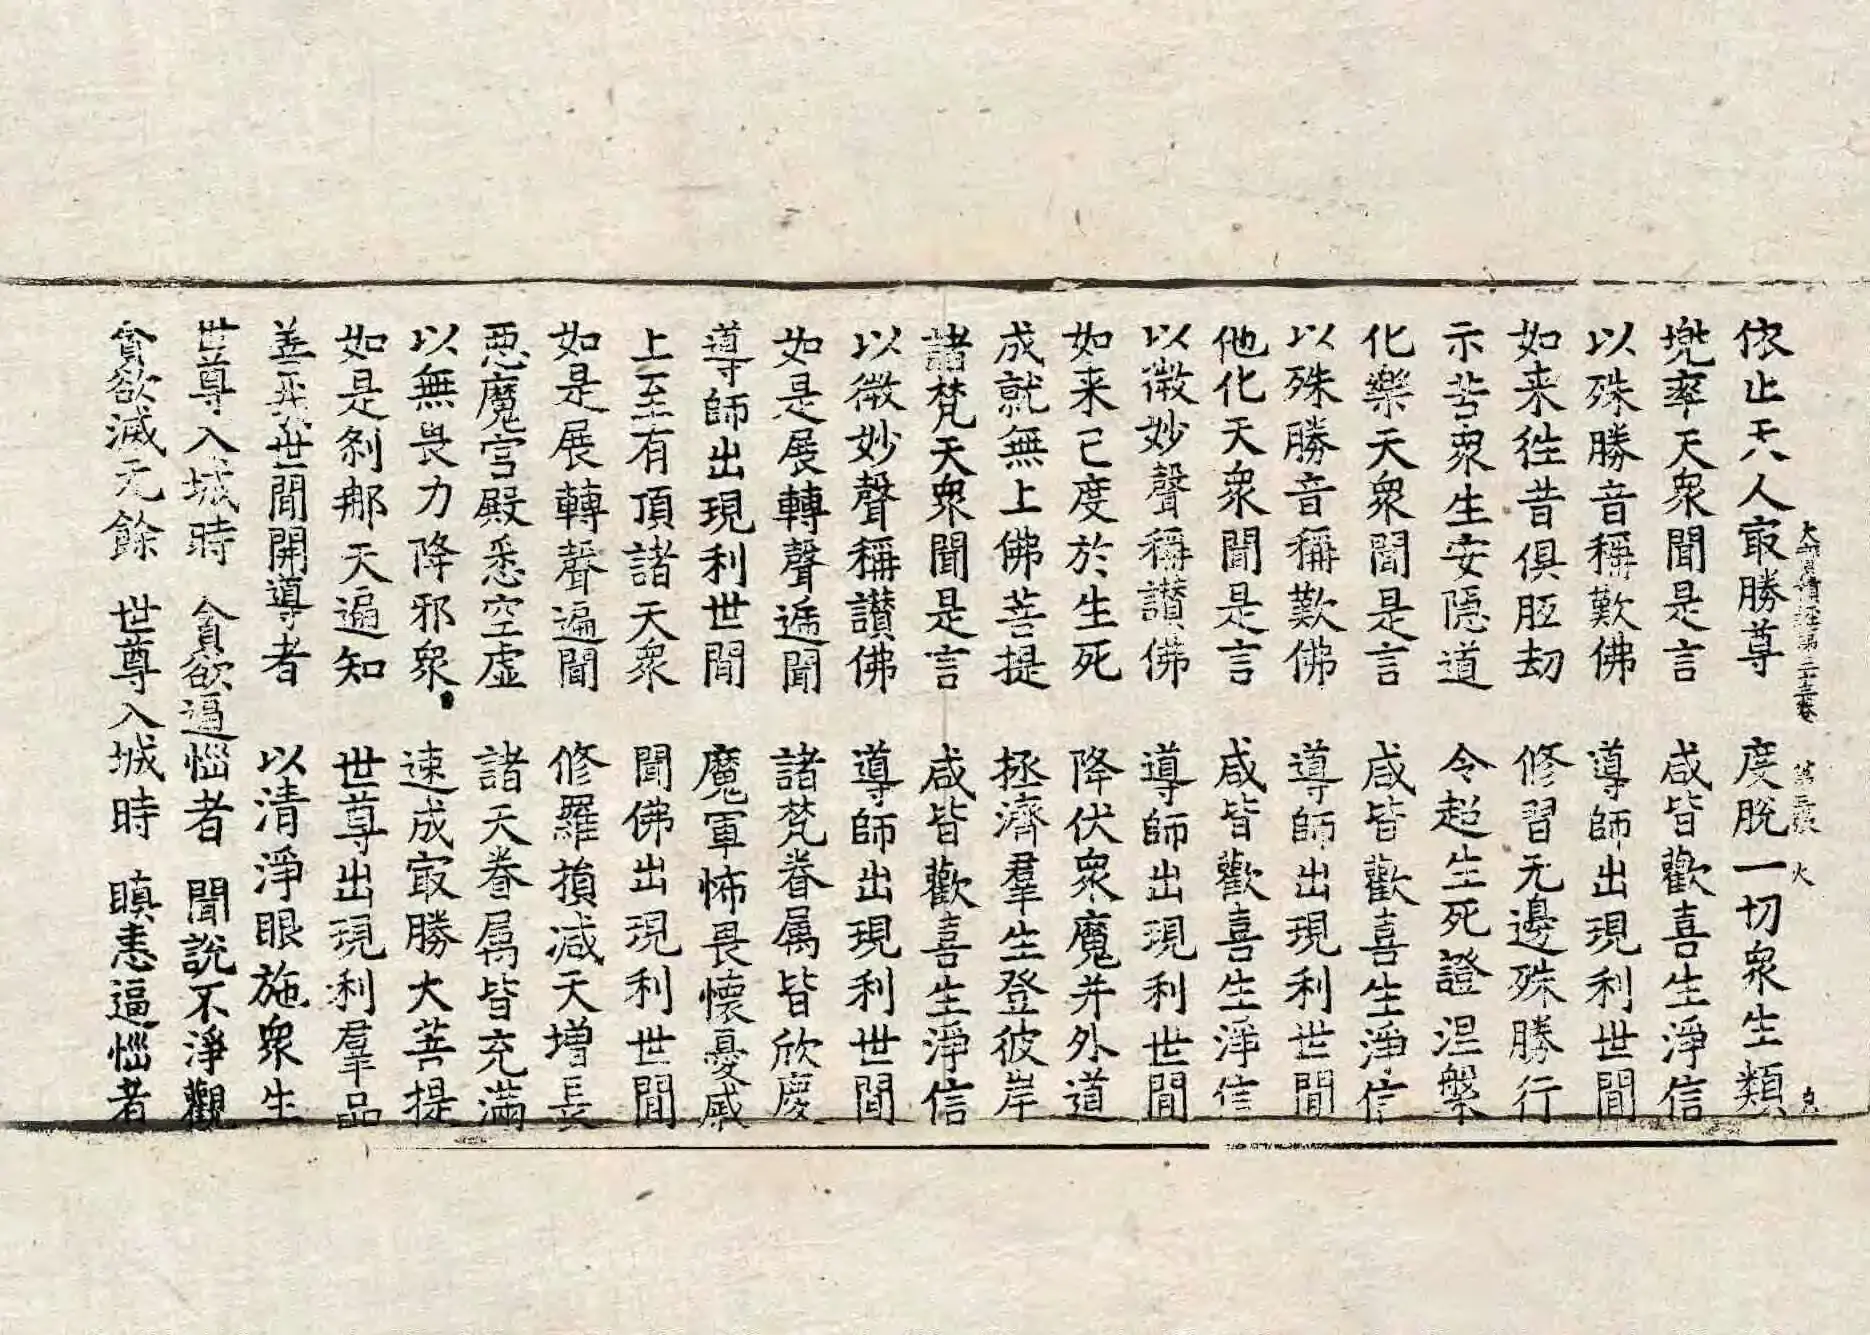 依止天人㝡勝尊　度脫一切衆生類
大寶積經第三十三卷　第三張　火
兜率天衆聞是言　咸皆歡喜生淨信
以殊勝音稱歎佛　導師出現利世間
如来徃昔俱胝劫　修習无邊殊勝行
示苦衆生安隱道　令超生死證涅槃
化樂天衆聞是言　咸皆歡喜生淨信
以殊勝音稱歎佛　導師出現利世間
他化天衆聞是言　咸皆歡喜生淨信
以微妙聲稱讃佛　導師出現利世間
如来已度於生死　降伏衆魔并外道
成就無上佛菩提　拯濟羣生登彼岸
諸梵天衆聞是言　咸皆歡喜生淨信
以微妙聲稱讃佛　導師出現利世間
如是展轉聲遍聞　諸梵眷属皆欣慶
導師出現利世間　魔軍怖畏懷憂慼
上至有頂諸天衆　聞佛出現利世間
如是展轉聲遍聞　修羅損減天增長
惡魔宫殿悉空虛　諸天眷属皆充滿
以無畏力降邪衆　速成㝡勝大菩提
如是刹那天遍知　世尊出現利羣品
善哉世間開導者　以清淨眼施衆生
世尊入城時　貪欲逼惱者　聞說不淨觀
貪欲滅无餘　世尊入城時　瞋恚逼惱者